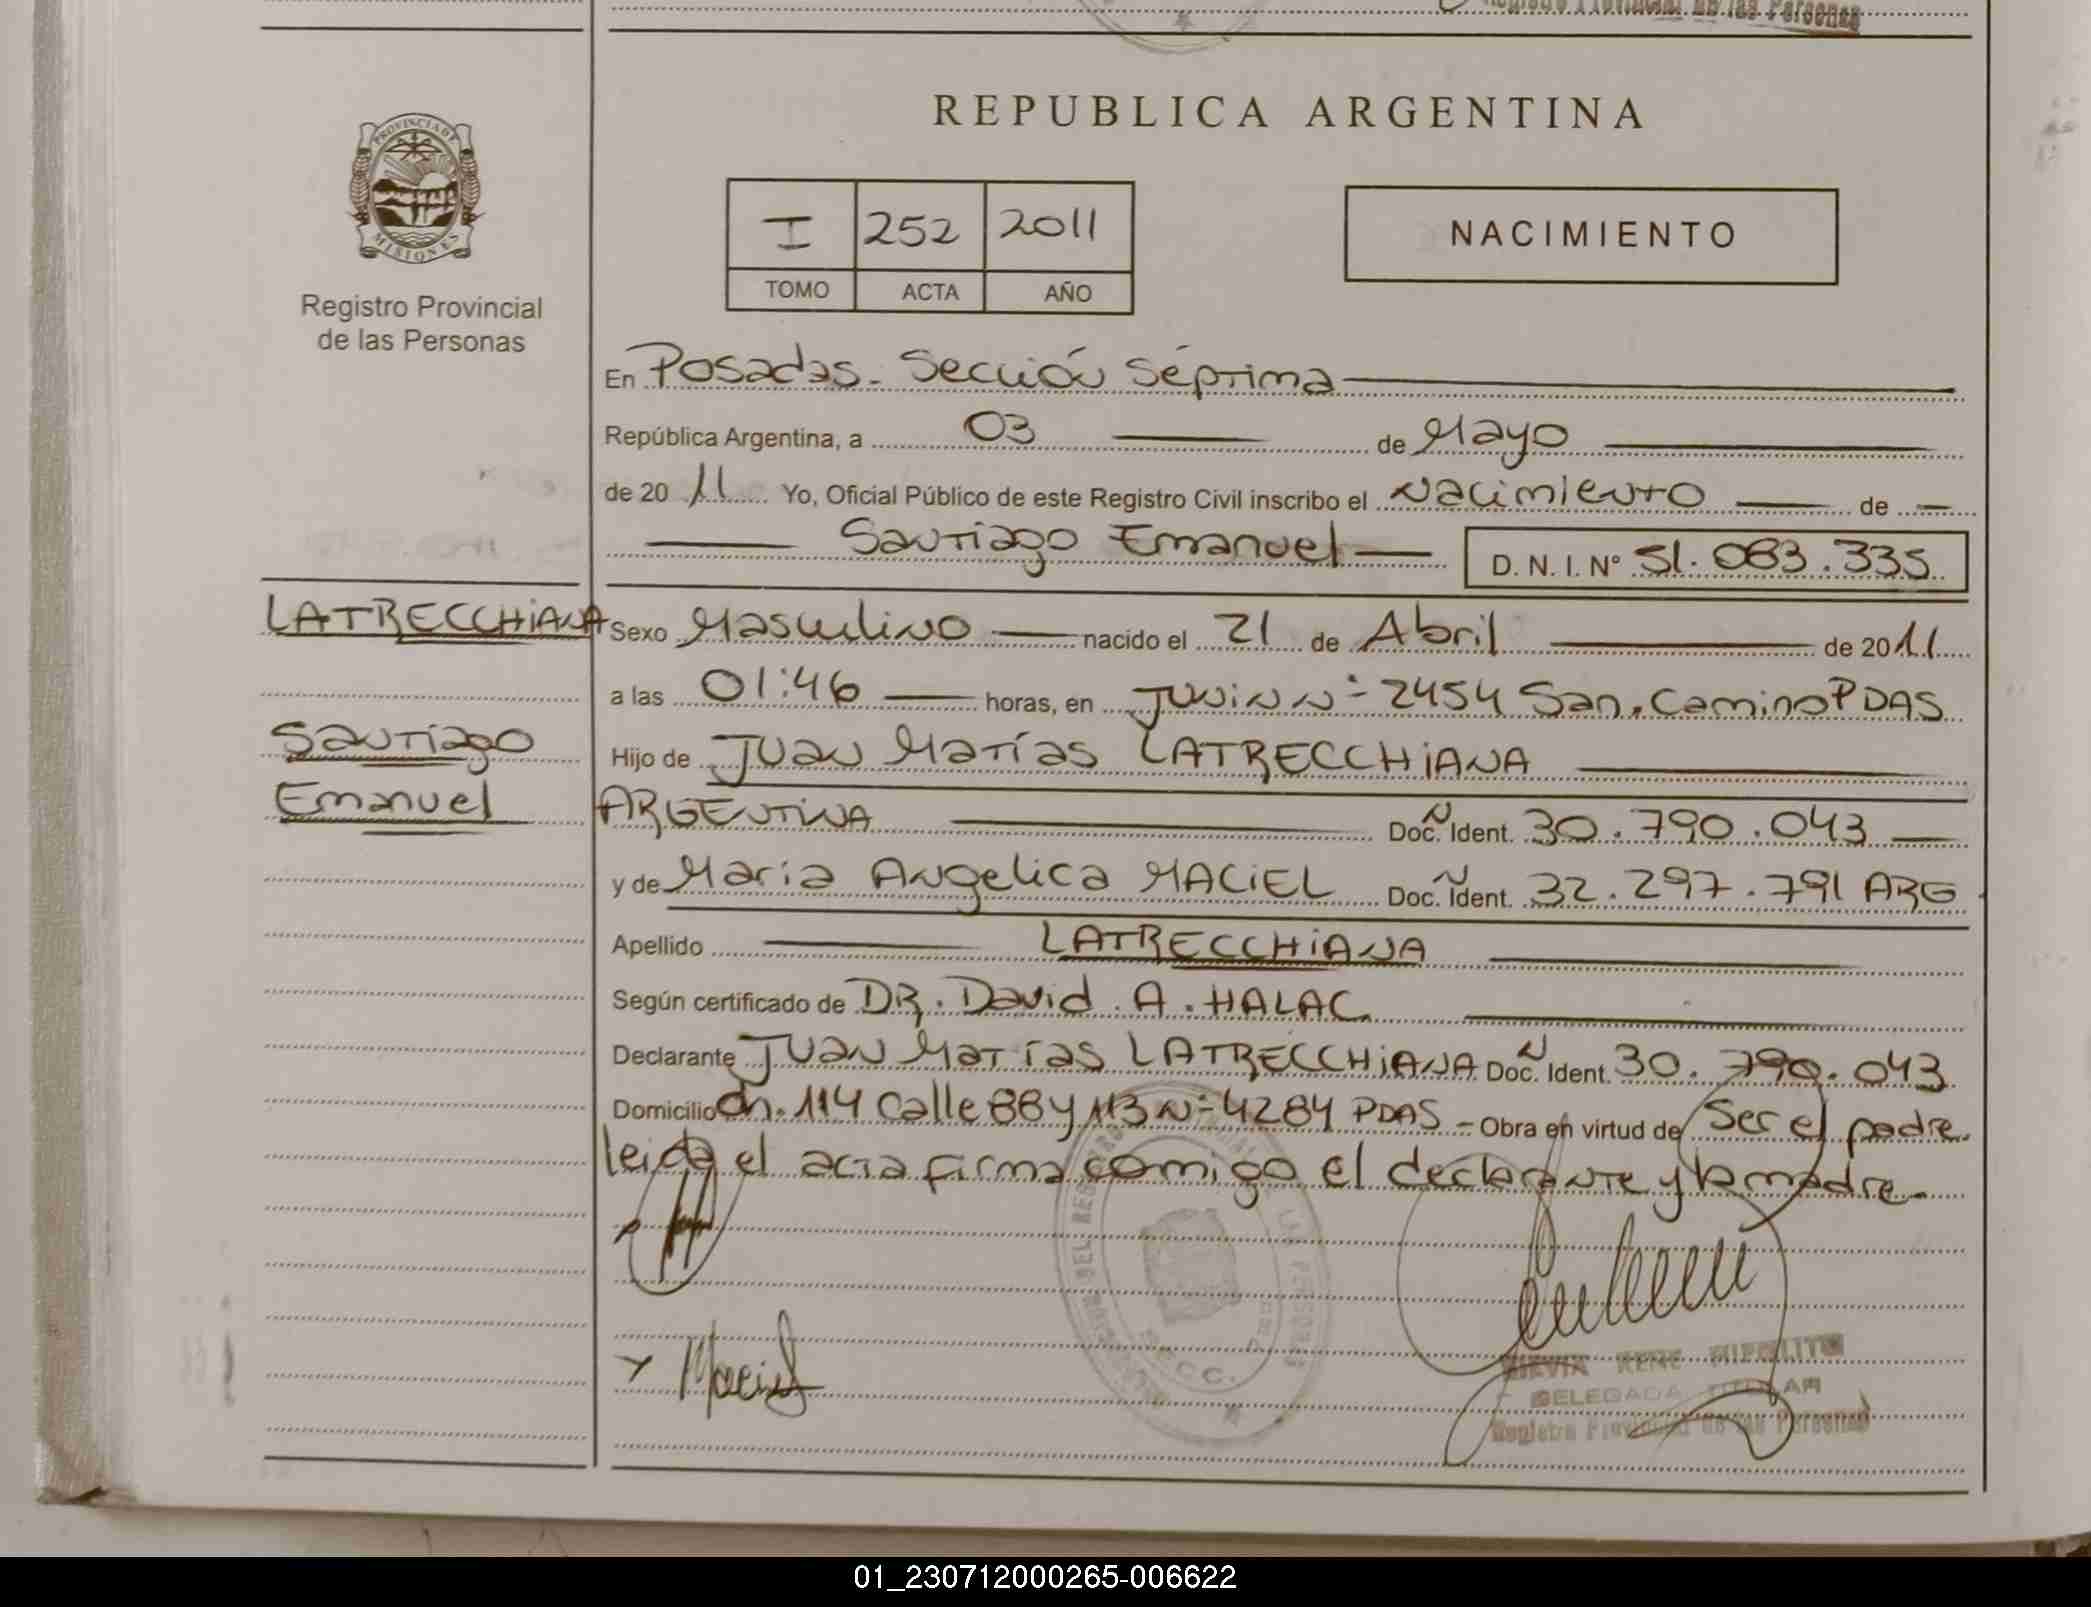 Registro Provincial de las Personas
REPUBLICA ARGENTINA
PROVINCIA DE
MISIONES
Registro Provincial
de las Personas
I 252 2011
TOMO ACTA AÑO
NACIMIENTO
En Posadas - Sección Séptima
República Argentina, a 03 de Mayo
de 2011 Yo, Oficial Público de este Registro Civil inscribo el Nacimiento de
Santiago Emanuel D. N. I. Nº 51.083.335
LATRECCHiANA Sexo Masculino nacido el 21 de Abril de 2011
a las 01:46 horas, en Junin Nº 2454 San. Camino PDAS
Santiago Hijo de Juan Matías LATRECCHiANA
Emanuel ARGENTINA Doc. N Ident. 30.790.043
y de Maria Angelica MACiEL Doc. N Ident. 32.297.791 ARG
Apellido LATRECCHiANA
Según certificado de DR. David A. HALAC
Declarante Juan Matías LATRECCHiANA Doc. N Ident. 30.790.043
Domicilio Ch. 114 Calle 88 y 113 Nº 4284 PDAS - Obra en virtud de Ser el padre.
leida el acta firma comigo el declarante y la madre-
Maciel
RENE HIPOLITO
DELEGADA TITULAR
Registro Provincial de las Personas
01_230712000265-006622